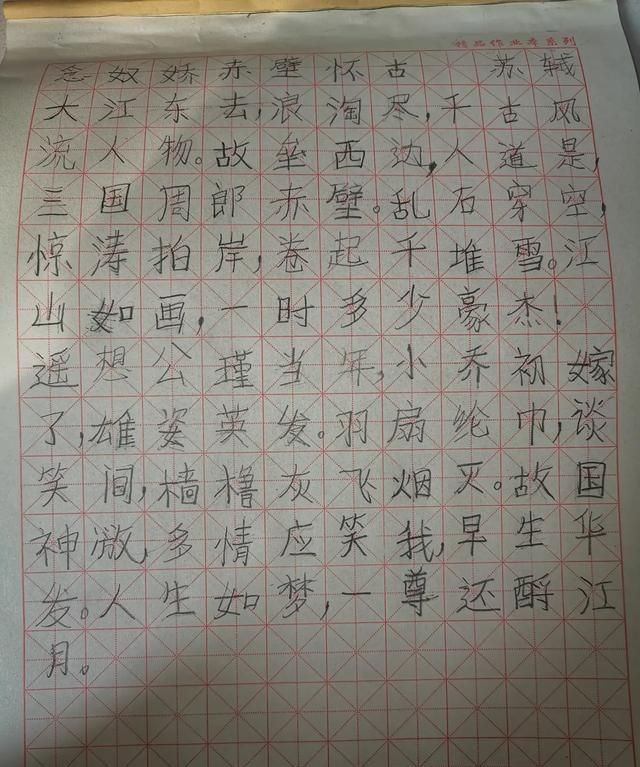 精品作业本系列
念奴娇赤壁怀古 苏轼
大江东去,浪淘尽,千古风
流人物。故垒西边,人道是,
三国周郎赤壁。乱石穿空,
惊涛拍岸,卷起千堆雪。江
山如画,一时多少豪杰!
遥想公瑾当年,小乔初嫁
了,雄姿英发。羽扇纶巾,谈
笑间,樯橹灰飞烟灭。故国
神,多情应笑我,早生华
发。人生如梦,一尊还酹江
月。